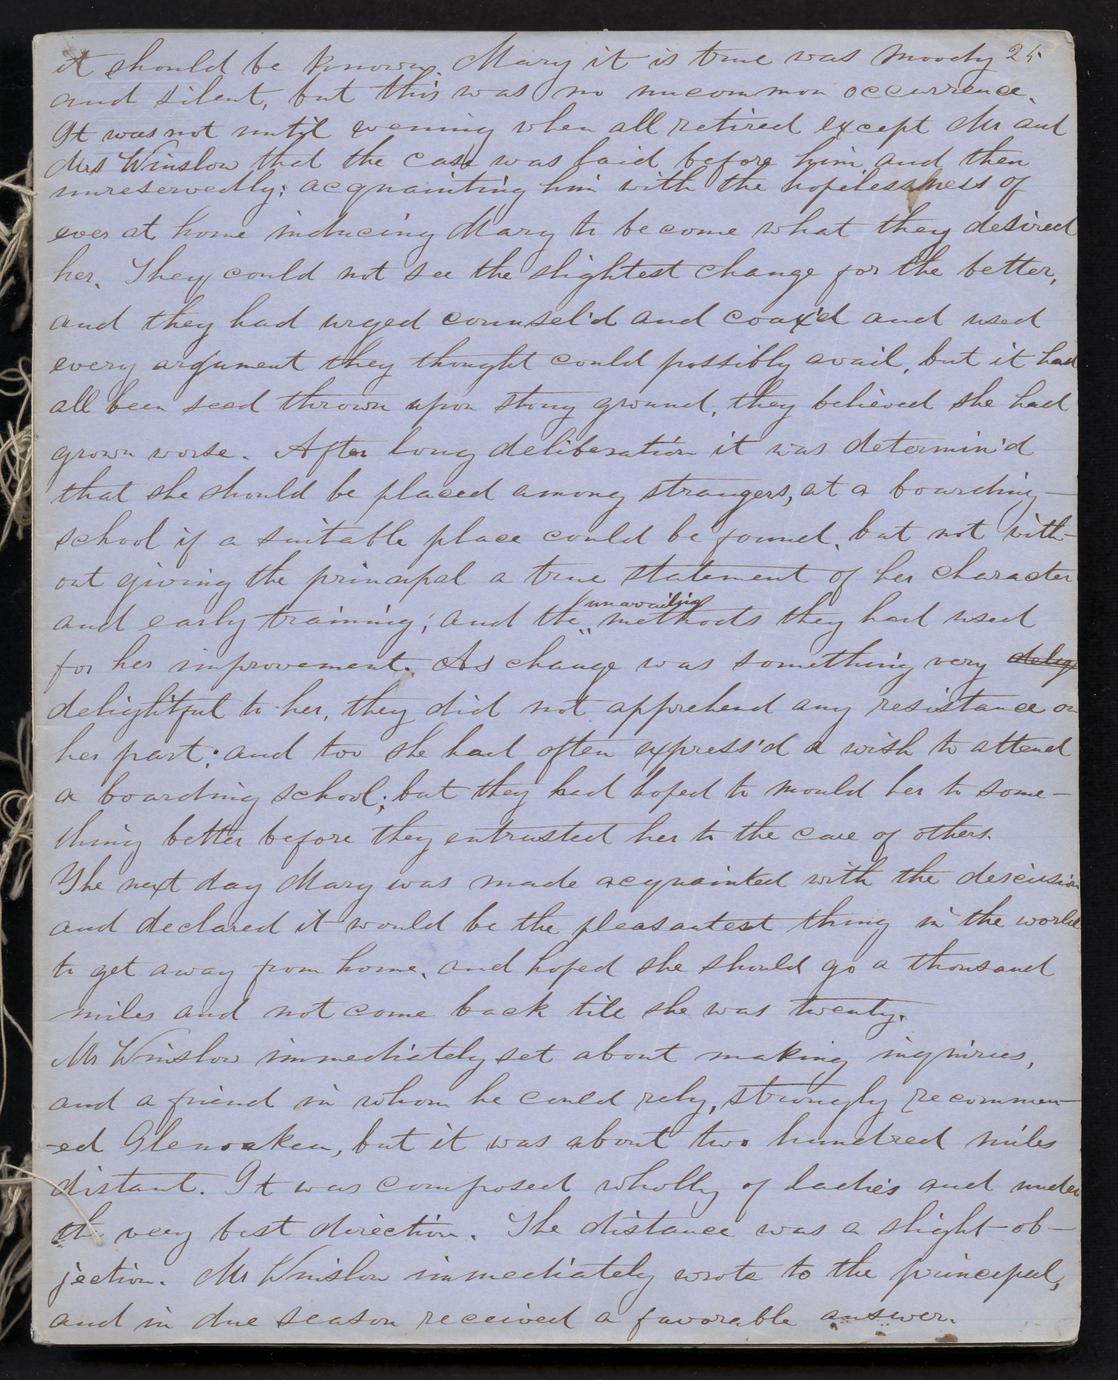 it should be known. Mary it is true was moody 25
and silent, but this was no uncommon occurrence.
It was not until evening when all retired except Mr and
Mrs Winslow that the case was laid before him, and then
unreservedly; acquainting him with the hopelessness of
ever at home inducing Mary to become what they desired
her. They could not see the slightest change for the better,
and they had urged counsel'd and coax'd and used
every argument they thought could possibly avail, but it had
all been seed thrown upon stony ground, they believed she had
grown worse. After long deliberation it was determin'd
that she should be placed among strangers, at a boarding-
school if a suitable place could be found, but not with-
out giving the principal a true statement of her character
and early training; and the unavailing methods they had used
for her improvement. As change was something very delig
delightful to her, they did not apprehend any resistance on
her part; and too she had often express'd a wish to attend
a boarding school; but they had hoped to mould her to some-
thing better before they entrusted her to the care of others.
The next day Mary was made acquainted with the descision
and declared it would be the pleasantest thing in the world
to get away from home, and hoped she should go a thousand
miles and not come back till she was twenty.
Mr Winslow immediately set about making inquiries,
and a friend in whom he could rely, strongly recommen-
-ed Glenoaken, but it was about two hundred miles
distant. It was composed wholly of ladies and under
the very best direction. The distance was a slight ob-
jection. Mr Winslow immediately wrote to the principal,
and in due season received a favorable answer.